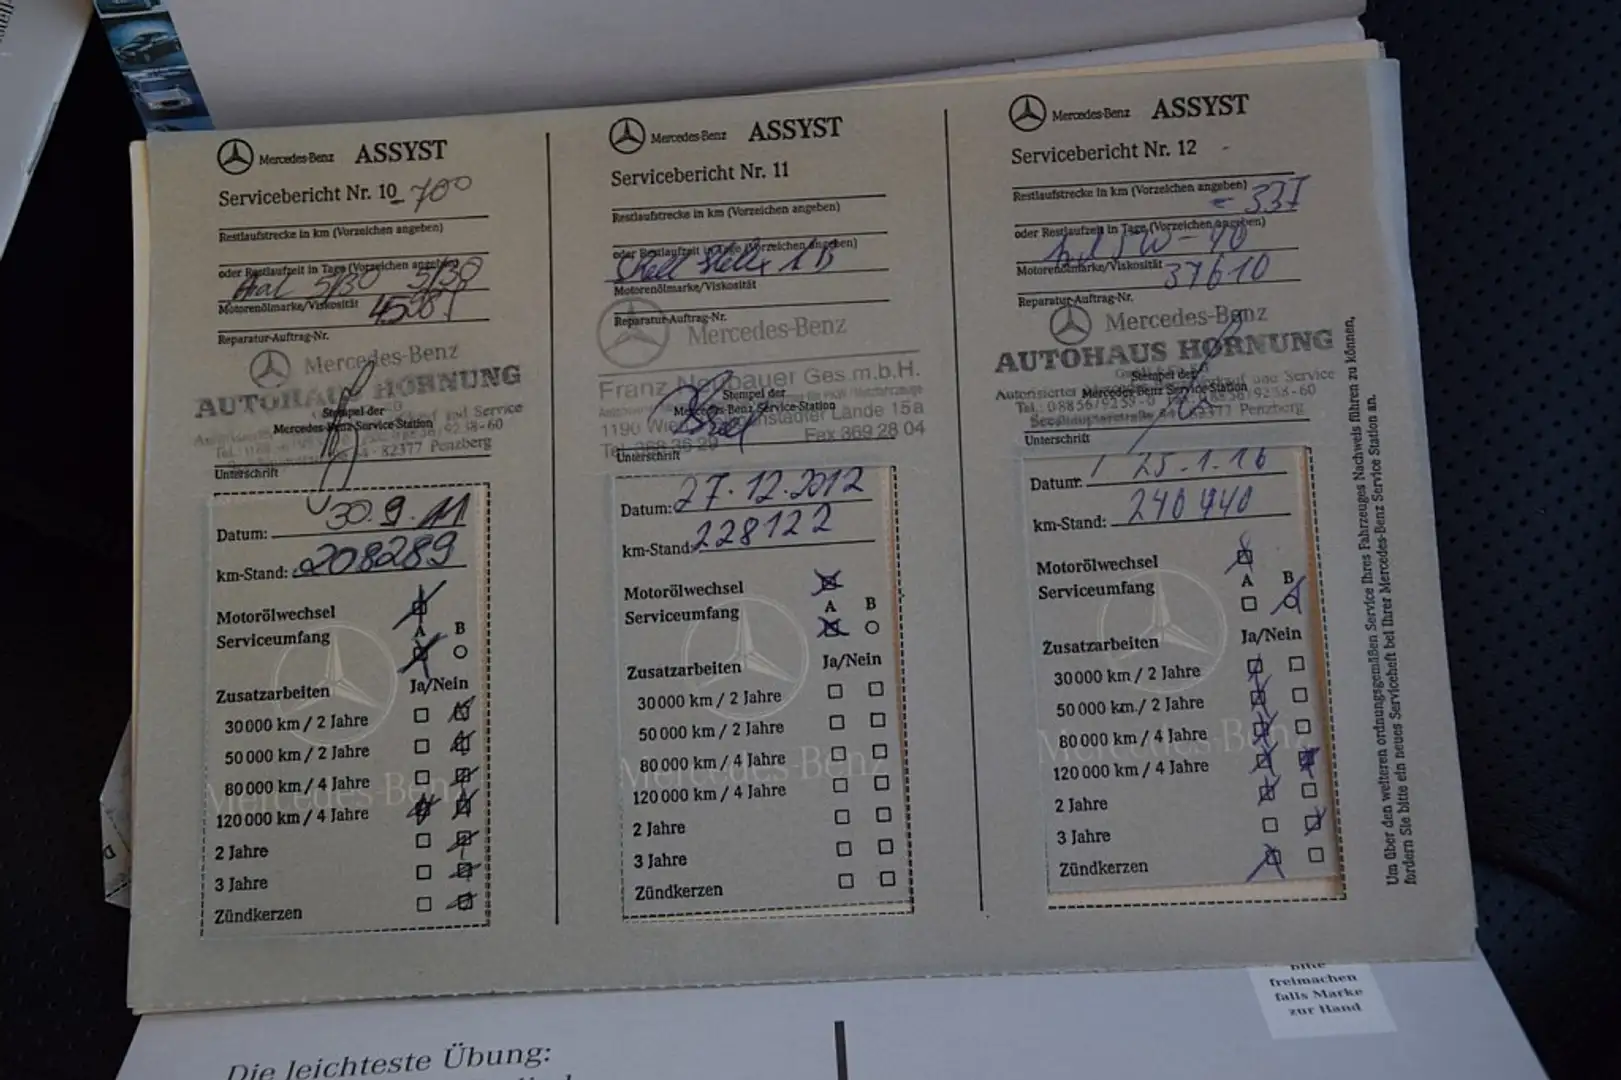 Mercedes-Benz ASSYST
Servicebericht Nr. 10
- 700
Restlaufstrecke in km (Vorzeichen angeben)
oder Restlaufzeit in Tage (Vorzeichen angeben)
Aral 5/30 5/30
Motorenölmarke/Viskosität
Reparatur-Auftrag-Nr.
Mercedes-Benz
AUTOHAUS HORNUNG
Stempel der
Mercedes-Benz Service-Station
und Service
82377 Penzberg
Unterschrift
Datum: 30.9.11
km-Stand: 208289
Motorölwechsel
A B
Serviceumfang
Zusatzarbeiten Ja/Nein
30 000 km / 2 Jahre
50 000 km / 2 Jahre
80 000 km / 4 Jahre
120 000 km / 4 Jahre
2 Jahre
3 Jahre
Zündkerzen
Mercedes-Benz
Mercedes-Benz ASSYST
Servicebericht Nr. 11
Restlaufstrecke in km (Vorzeichen angeben)
oder Restlaufzeit in Tage (Vorzeichen angeben)
Motorenölmarke/Viskosität
Reparatur-Auftrag-Nr.
Mercedes-Benz
Franz Neubauer Ges.m.b.H.
Stempel der
Mercedes-Benz Service-Station
1190 Wien Lände 15a
Fax 369 28 04
Unterschrift
Datum: 27.12.2012
km-Stand: 228122
Motorölwechsel
A B
Serviceumfang
Zusatzarbeiten Ja/Nein
30 000 km / 2 Jahre
50 000 km / 2 Jahre
80 000 km / 4 Jahre
120 000 km / 4 Jahre
2 Jahre
3 Jahre
Zündkerzen
Mercedes-Benz
Mercedes-Benz ASSYST
Servicebericht Nr. 12
Restlaufstrecke in km (Vorzeichen angeben)
oder Restlaufzeit in Tage (Vorzeichen angeben)
5W-40
Motorenölmarke/Viskosität
37610
Reparatur-Auftrag-Nr.
Mercedes-Benz
AUTOHAUS HORNUNG
Stempel der
Autorisierter Mercedes-Benz Service-Station und Service
82377 Penzberg
Unterschrift
Datum: 25.1.16
km-Stand: 240940
Motorölwechsel
A B
Serviceumfang
Zusatzarbeiten Ja/Nein
30 000 km / 2 Jahre
50 000 km./ 2 Jahre
80 000 km / 4 Jahre
120 000 km / 4 Jahre
2 Jahre
3 Jahre
Zündkerzen
Mercedes-Benz
Um über den weiteren ordnungsgemäßen Service Ihres Fahrzeuges Nachweis führen zu können,
fordern Sie bitte ein neues Serviceheft bei Ihrer Mercedes-Benz Service Station an.
bitte
freimachen
falls Marke
zur Hand
Die leichteste Übung: